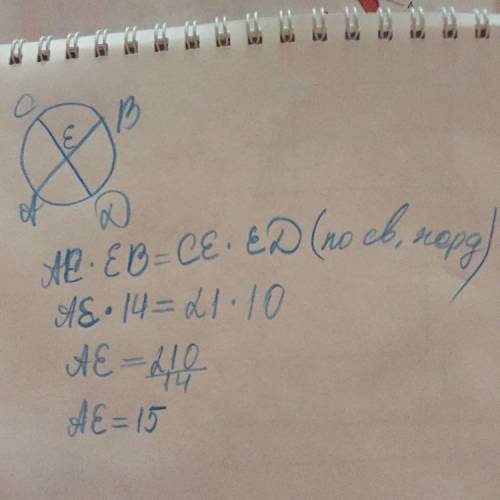 C
B
E
A
D
AE · EB = CE · ED (по св, хорд)
AE · 14 = 21 · 10
AE = 210/14
AE = 15